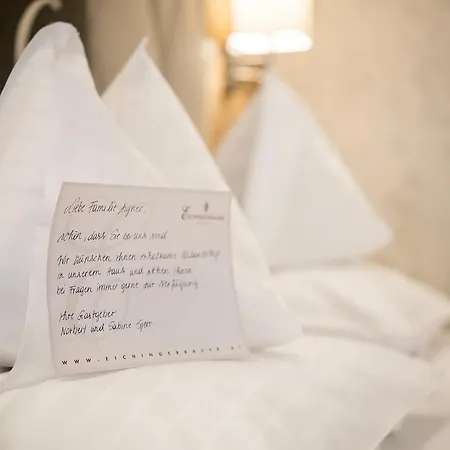 Eichingerbauer
Liebe Familie Aigner,
schön, dass Sie bei uns sind.
Wir wünschen Ihnen erholsame
in unserem Haus und stehen Ihnen
bei Fragen immer gerne zur Verfügung
Ihre Gastgeber
Norbert und Sabine
WWW.EICHINGERBAUER.AT